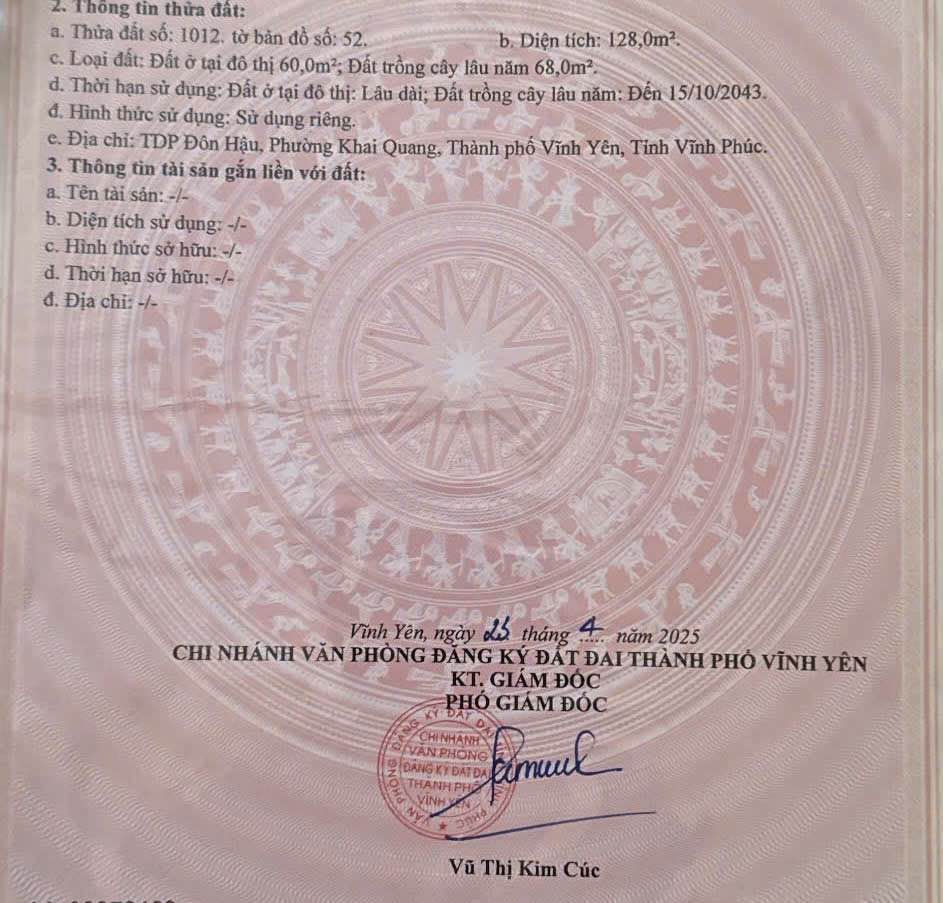 2. Thông tin thửa đất:
a. Thửa đất số: 1012, tờ bản đồ số: 52. b. Diện tích: 128,0m².
c. Loại đất: Đất ở tại đô thị 60,0m²; Đất trồng cây lâu năm 68,0m².
d. Thời hạn sử dụng: Đất ở tại đô thị: Lâu dài; Đất trồng cây lâu năm: Đến 15/10/2043.
đ. Hình thức sử dụng: Sử dụng riêng.
e. Địa chỉ: TDP Đôn Hậu, Phường Khai Quang, Thành phố Vĩnh Yên, Tỉnh Vĩnh Phúc.
3. Thông tin tài sản gắn liền với đất:
a. Tên tài sản: -/-
b. Diện tích sử dụng: -/-
c. Hình thức sở hữu: -/-
d. Thời hạn sở hữu: -/-
đ. Địa chỉ: -/-
Vĩnh Yên, ngày 25 tháng 4 năm 2025
CHI NHÁNH VĂN PHÒNG ĐĂNG KÝ ĐẤT ĐAI THÀNH PHỐ VĨNH YÊN
KT. GIÁM ĐỐC
PHÓ GIÁM ĐỐC
CHI NHÁNH
VĂN PHÒNG
ĐĂNG KÝ ĐẤT ĐAI
THÀNH PHỐ
VĨNH YÊN
Vũ Thị Kim Cúc